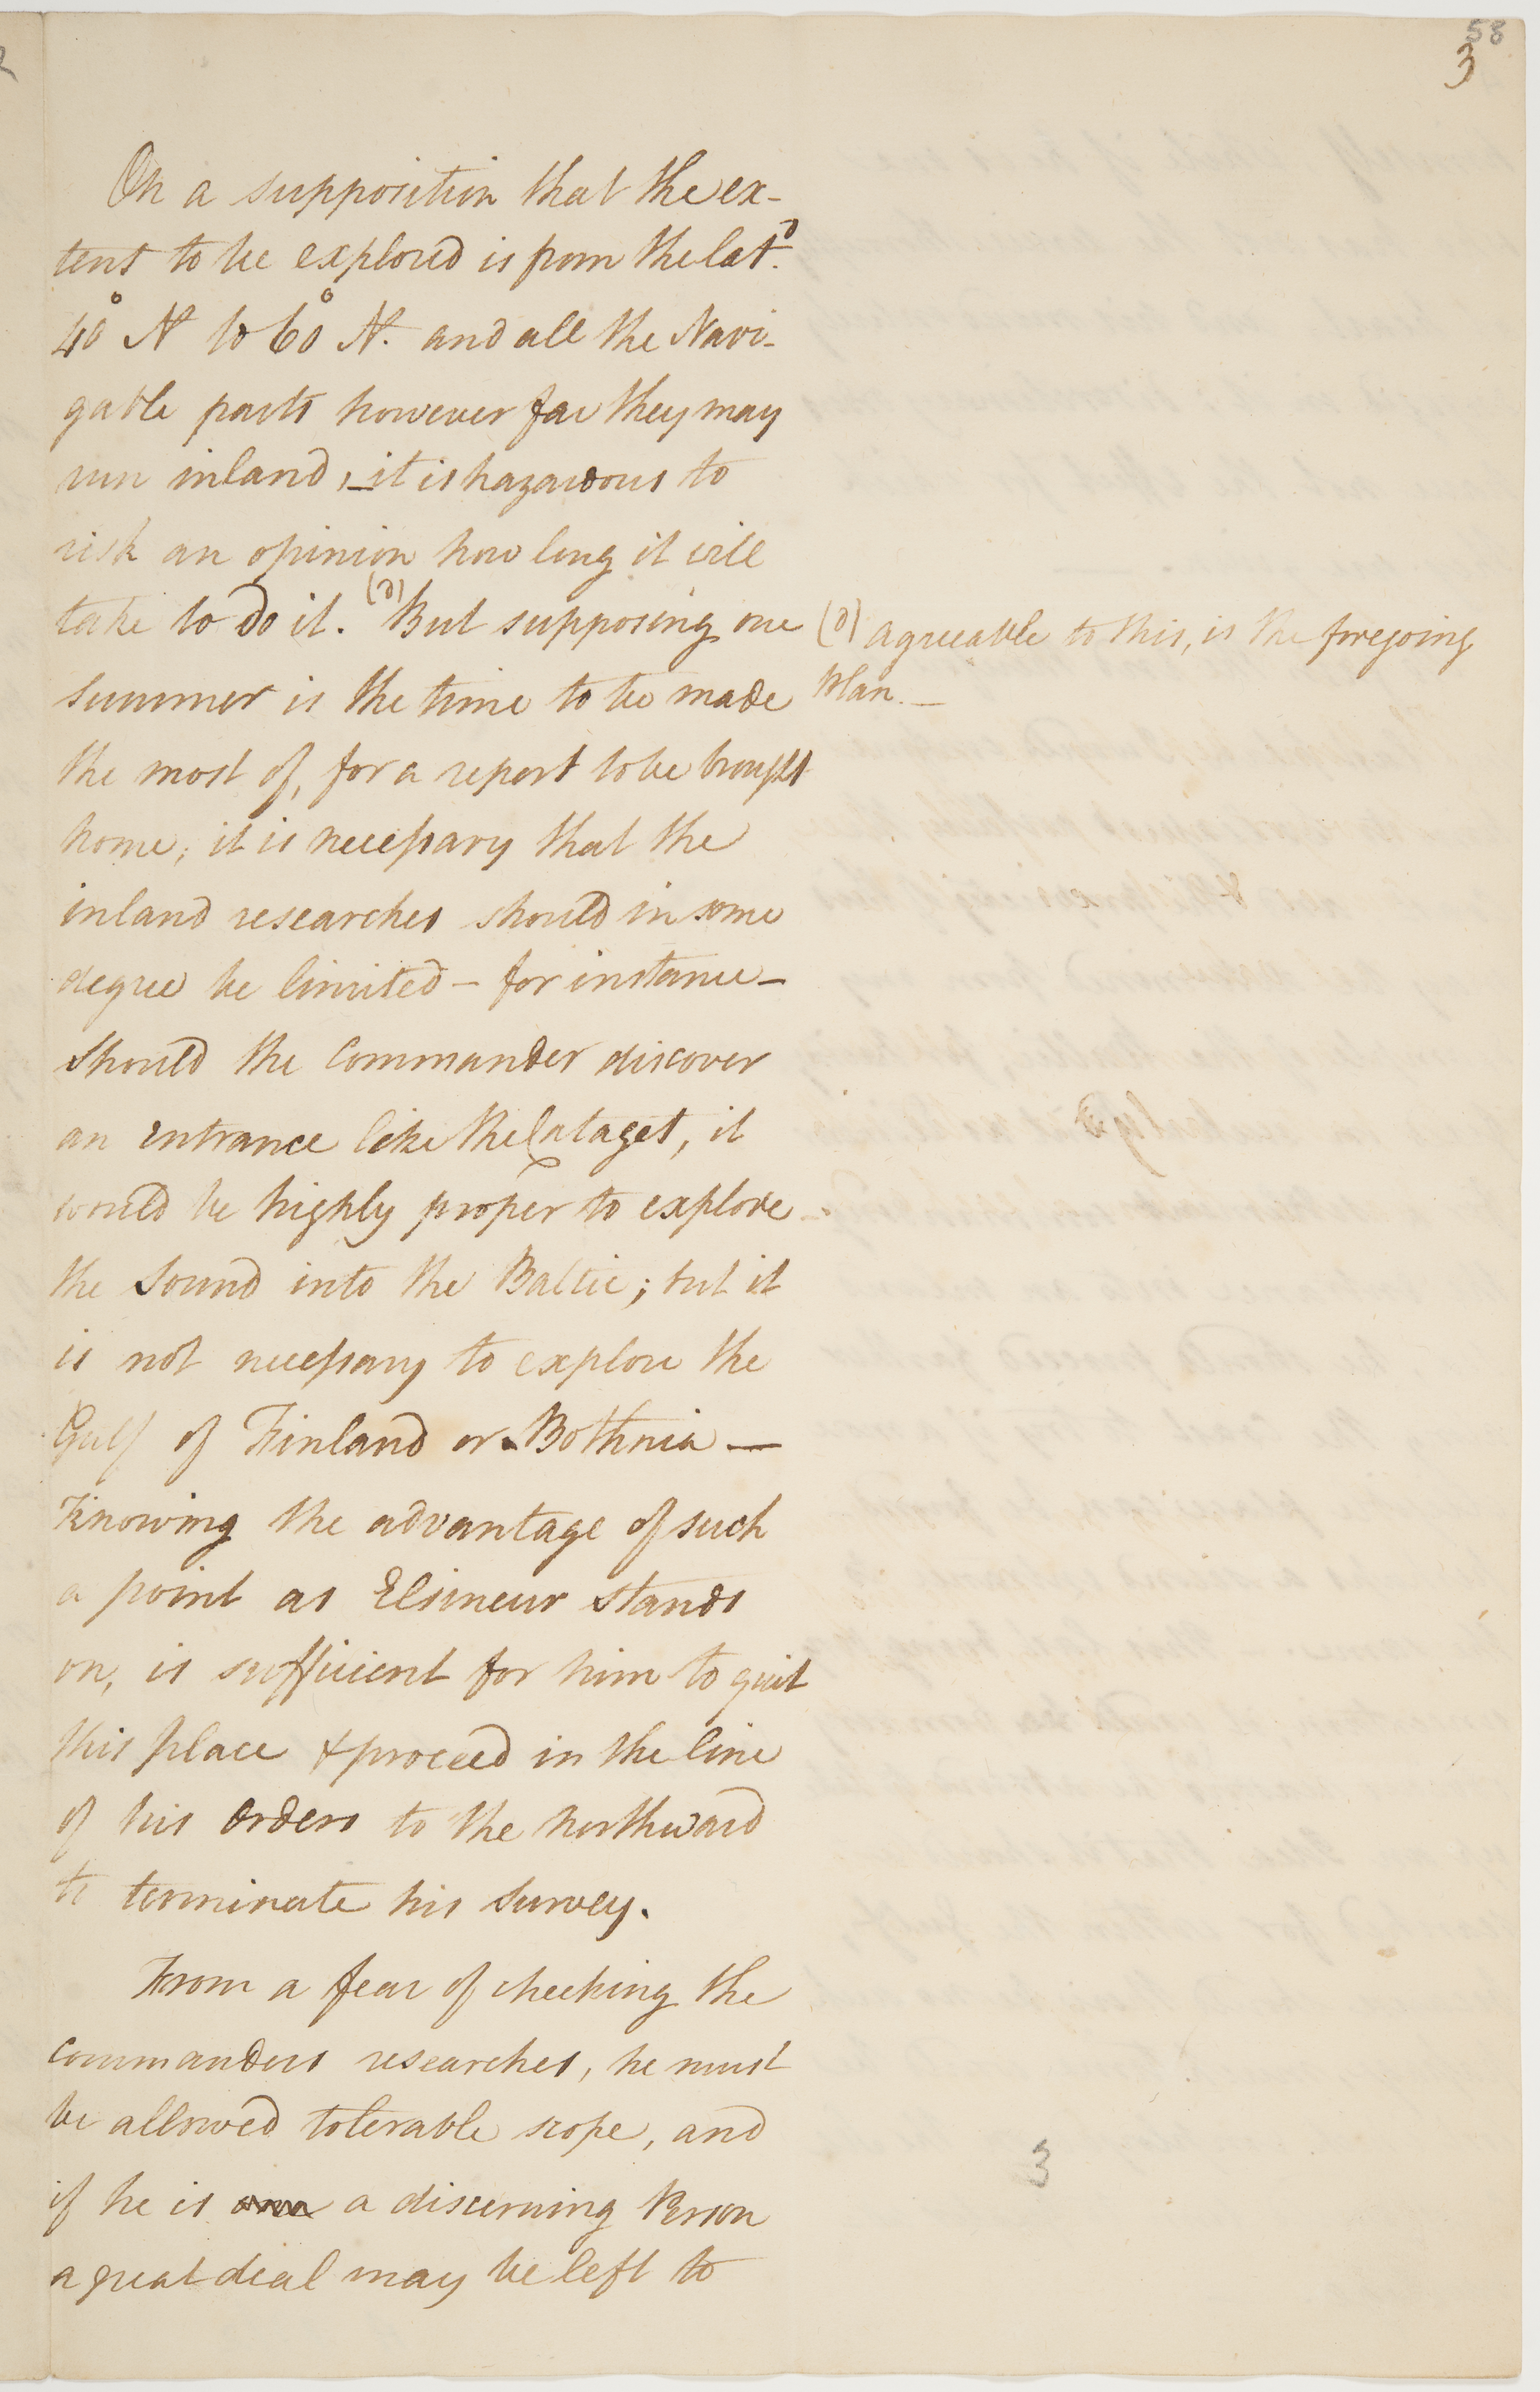 58
3
On a supposition that the ex-
tent to be explored is from the latd.
40° N to 60° N. and all the Navi-
gable parts however far they may
run inland, - it is hazardous to
risk an opinion how long it will
take to do it. (a) But supposing one
summer is the time to be made
the most of, for a report to be brought
home, it is necessary that the
inland researches should in some
degree be limited - for instance -
Should the Commander discover
an entrance like the Cataget, it
would be highly proper to explore
the Sound into the Baltic; but it
is not necessary to explore the
Gulf of Finland or Bothnia —
Knowing the advantage of such
a point as Elsineur stands
on, is sufficient for him to quit
this place & proceed in the line
of his Orders to the northward
to terminate his Survey.
From a fear of checking the
commanders researches, he must
be allowed tolerable scope, and
if he is a discerning Person
a great deal may be left to
(a) agreeable to this, is the foregoing
Plan. —
3